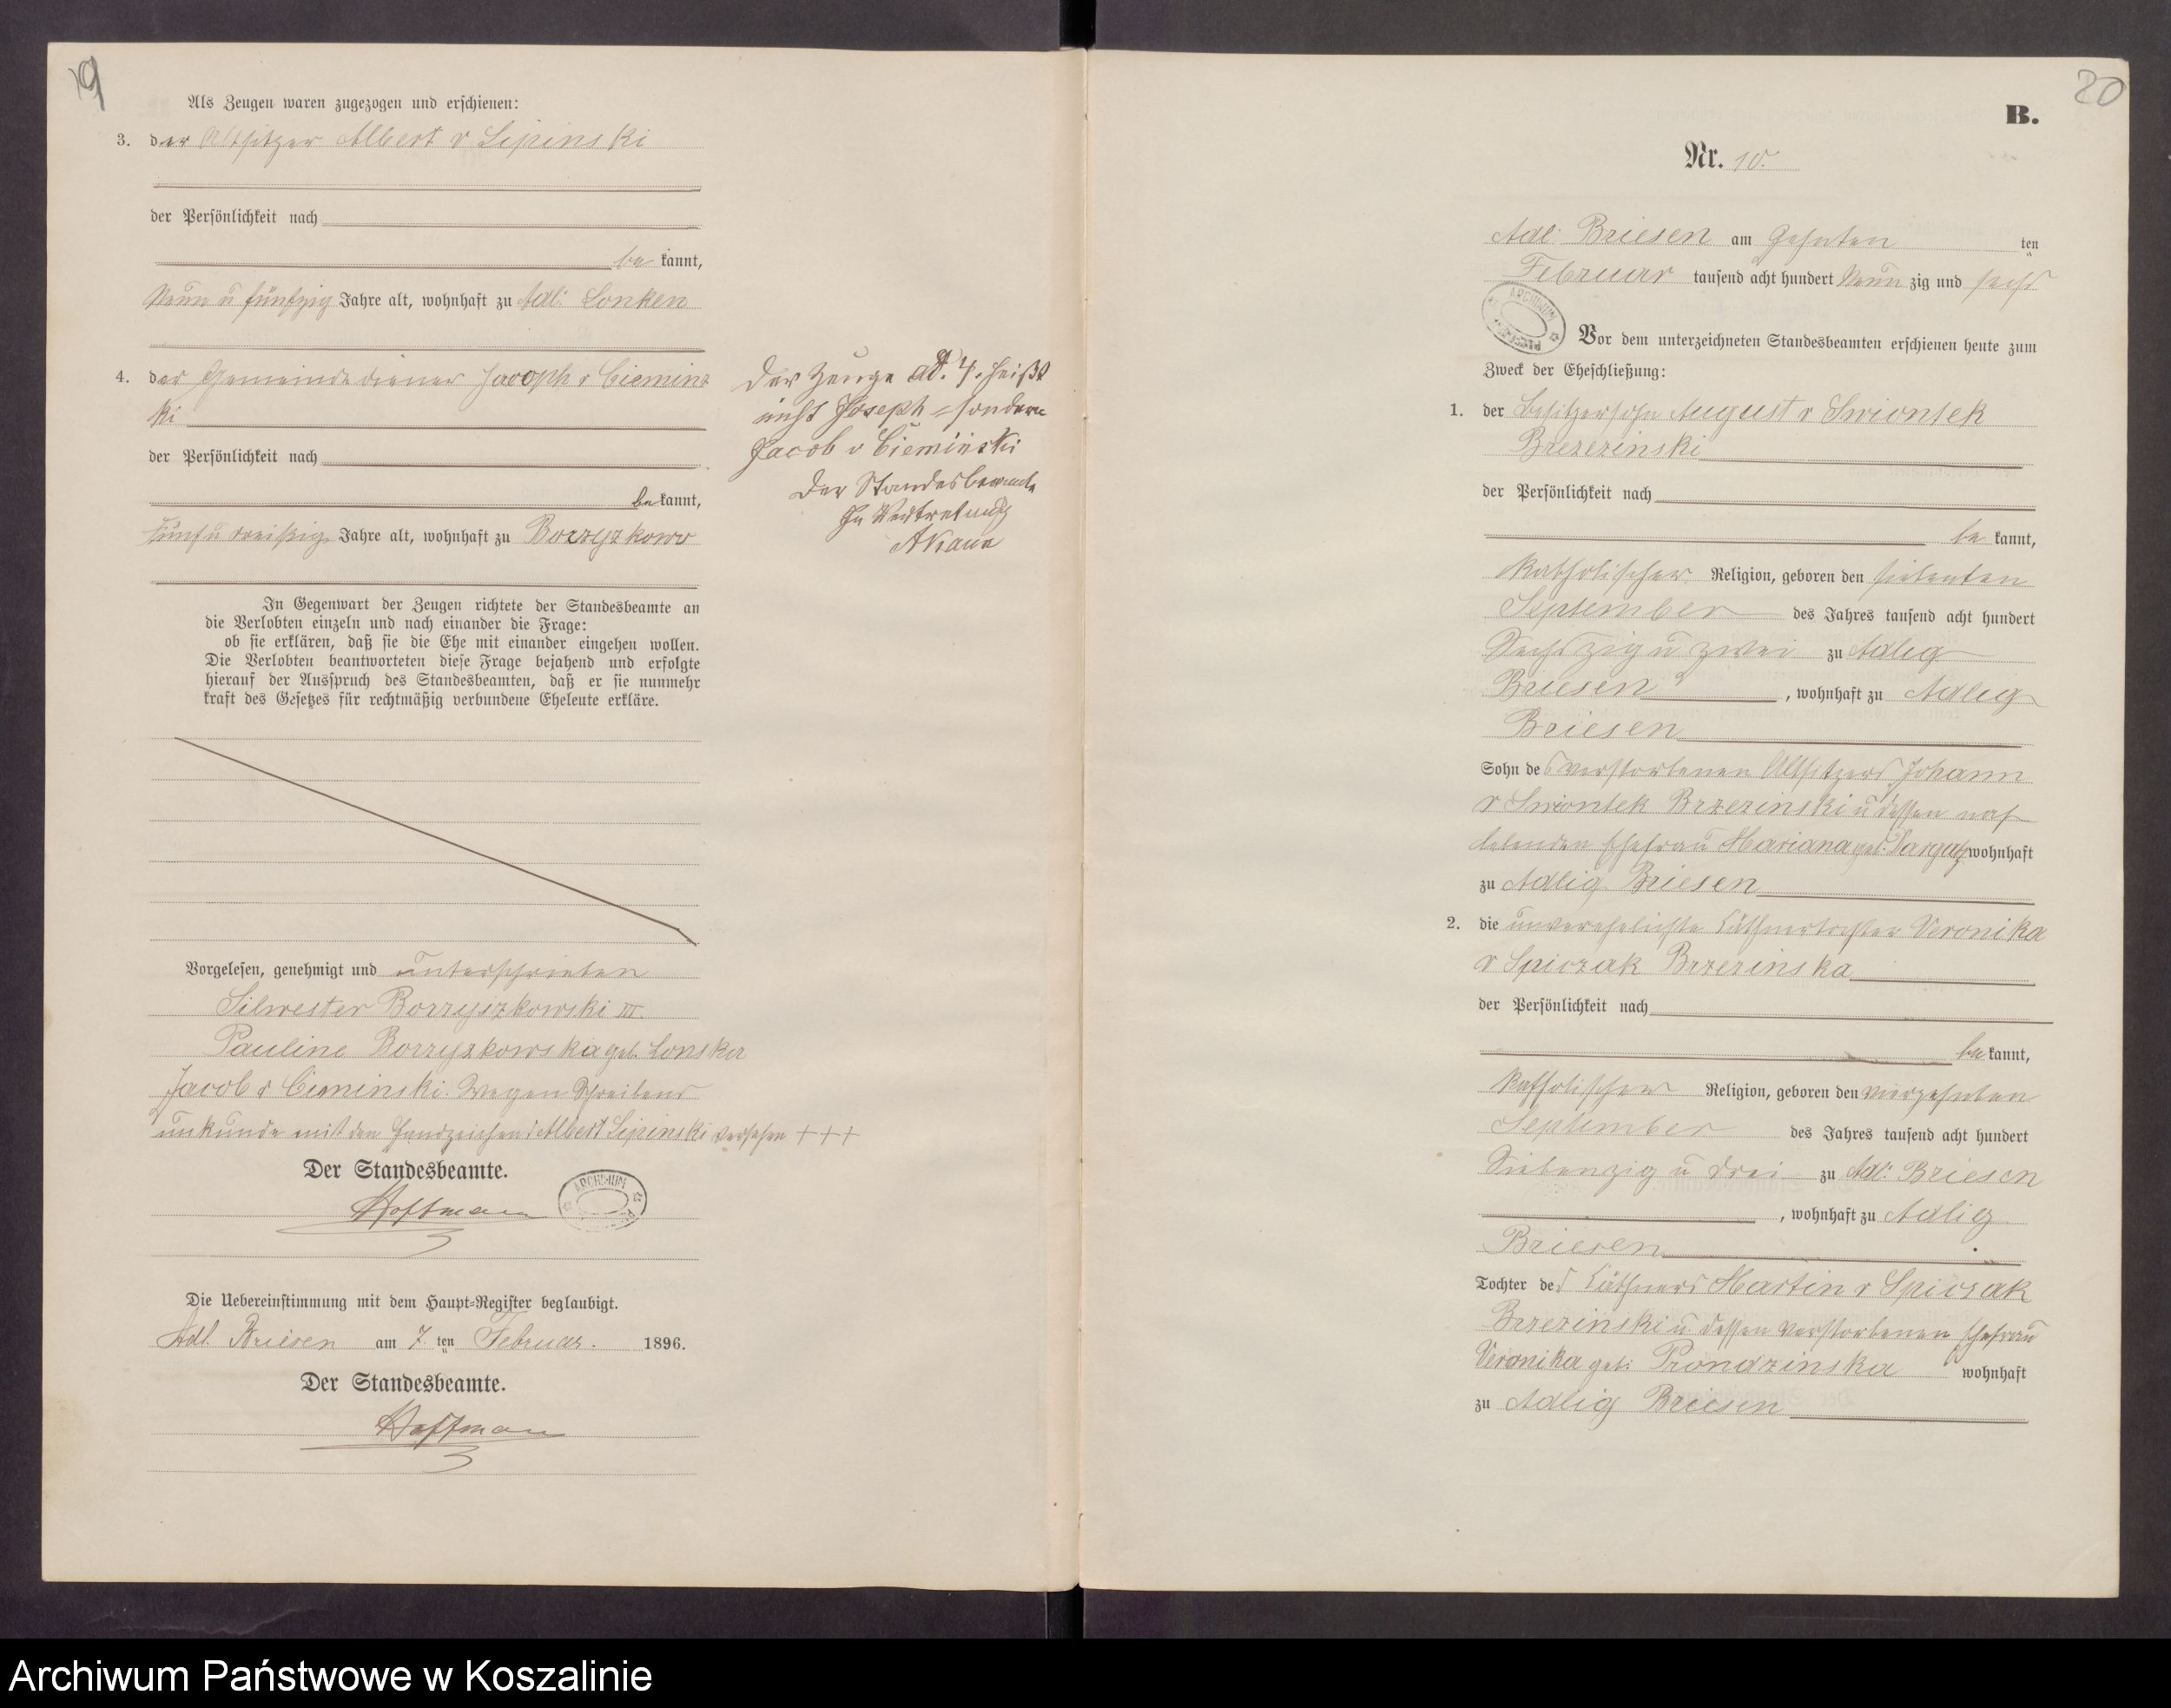 19
Als Zeugen waren zugezogen und erschienen:
3. der Altsitzer Albert v Lipinski
der Persönlichkeit nach
be kannt,
Neun u fünfzig Jahre alt, wohnhaft zu Adl: Lonken
4. der Gemeindediener Jacoph v Cieminz
ki
der Persönlichkeit nach
be kannt,
Fünf u dreißig Jahre alt, wohnhaft zu Borzyzkowo
In Gegenwart der Zeugen richtete der Standesbeamte an
die Verlobten einzeln und nach einander die Frage:
ob sie erklären, daß sie die Ehe mit einander eingehen wollen.
Die Verlobten beantworteten diese Frage bejahend und erfolgte
hierauf der Ausspruch des Standesbeamten, daß er sie nunmehr
kraft des Gesetzes für rechtmäßig verbundene Eheleute erkläre.
Vorgelesen, genehmigt und unterschrieben
Silwester Borzyszkowski III.
Pauline Borzyzkowska geb. Lonska
Jacob v Cieminski. Wegen Schreibens
unkunde mit den Handzeichen Albert Lipinski versehen +++
Der Standesbeamte.
Hoffmann
ARCHIWUM
Die Uebereinstimmung mit dem Haupt=Register beglaubigt.
Adl. Briesen am 7 ten Februar. 1896.
Der Standesbeamte.
Hoffmann
Der Zeuge ad. 4. heißt
nicht Joseph = sondern
Jacob v Cieminski
Der Standesbeamte
In Vertretung
20
B.
Nr. 10.
Adl: Briesen am Zehnten ten
Februar tausend acht hundert Neun zig und sechs
ARCHIWUM
Vor dem unterzeichneten Standesbeamten erschienen heute zum
Zweck der Eheschließung:
1. der Besitzersohn August v Swiontek
Brezezinski
der Persönlichkeit nach
be kannt,
katholischer Religion, geboren den siebenten
September des Jahres tausend acht hundert
Sechszig u zwei zu Adlig
Briesen, wohnhaft zu Adlig
Briesen
Sohn des verstorbenen Altsitzers Johann
v Swiontek Brzezinski u dessen noch
lebenden Ehefrau Mariana geb. wohnhaft
zu Adlig Briesen
2. die unverehelichte Käthnertochter Veronika
v Spiczak Brzezinska
der Persönlichkeit nach
be kannt,
katholischer Religion, geboren den vierzehnten
September des Jahres tausend acht hundert
Siebenzig u drei zu Adl: Briesen
, wohnhaft zu Adlig
Briesen
Tochter des Käthners Martin v Spiczak
Brzezinski u dessen verstorbenen Ehefrau
Veronika geb: Prondzinska wohnhaft
zu Adlig Briesen
Archiwum Państwowe w Koszalinie